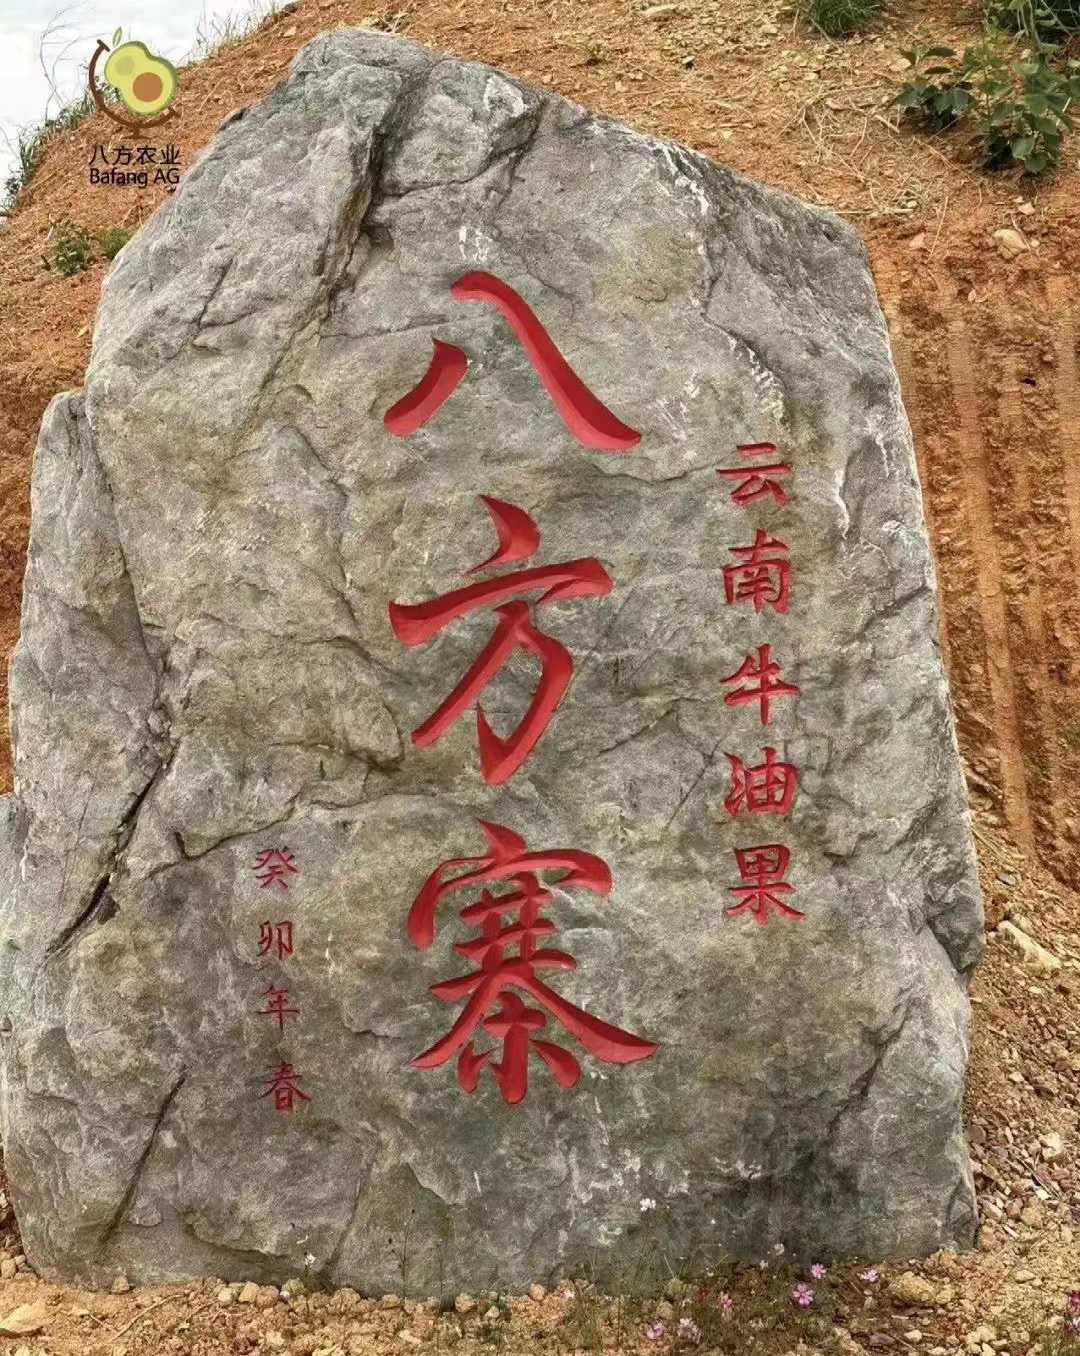 八方农业
Bafang AG
云南牛油果
八方寨
癸卯年春